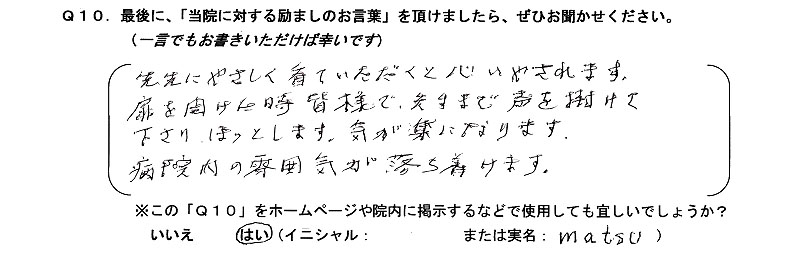 Q10．最後に、「当院に対する励ましのお言葉」を頂けましたら、ぜひお聞かせください。
（一言でもお書きいただけば幸いです）
先生にやさしく看ていただくと心いやされます。
扉を開けた時皆様で、先まで声を掛けて
下さり、ほっとします。気が楽になります。
病院内の雰囲気が落ち着けます。
※この「Q10」をホームページや院内に掲示するなどで使用しても宜しいでしょうか？
いいえ　はい（イニシャル：　または実名：matsu）